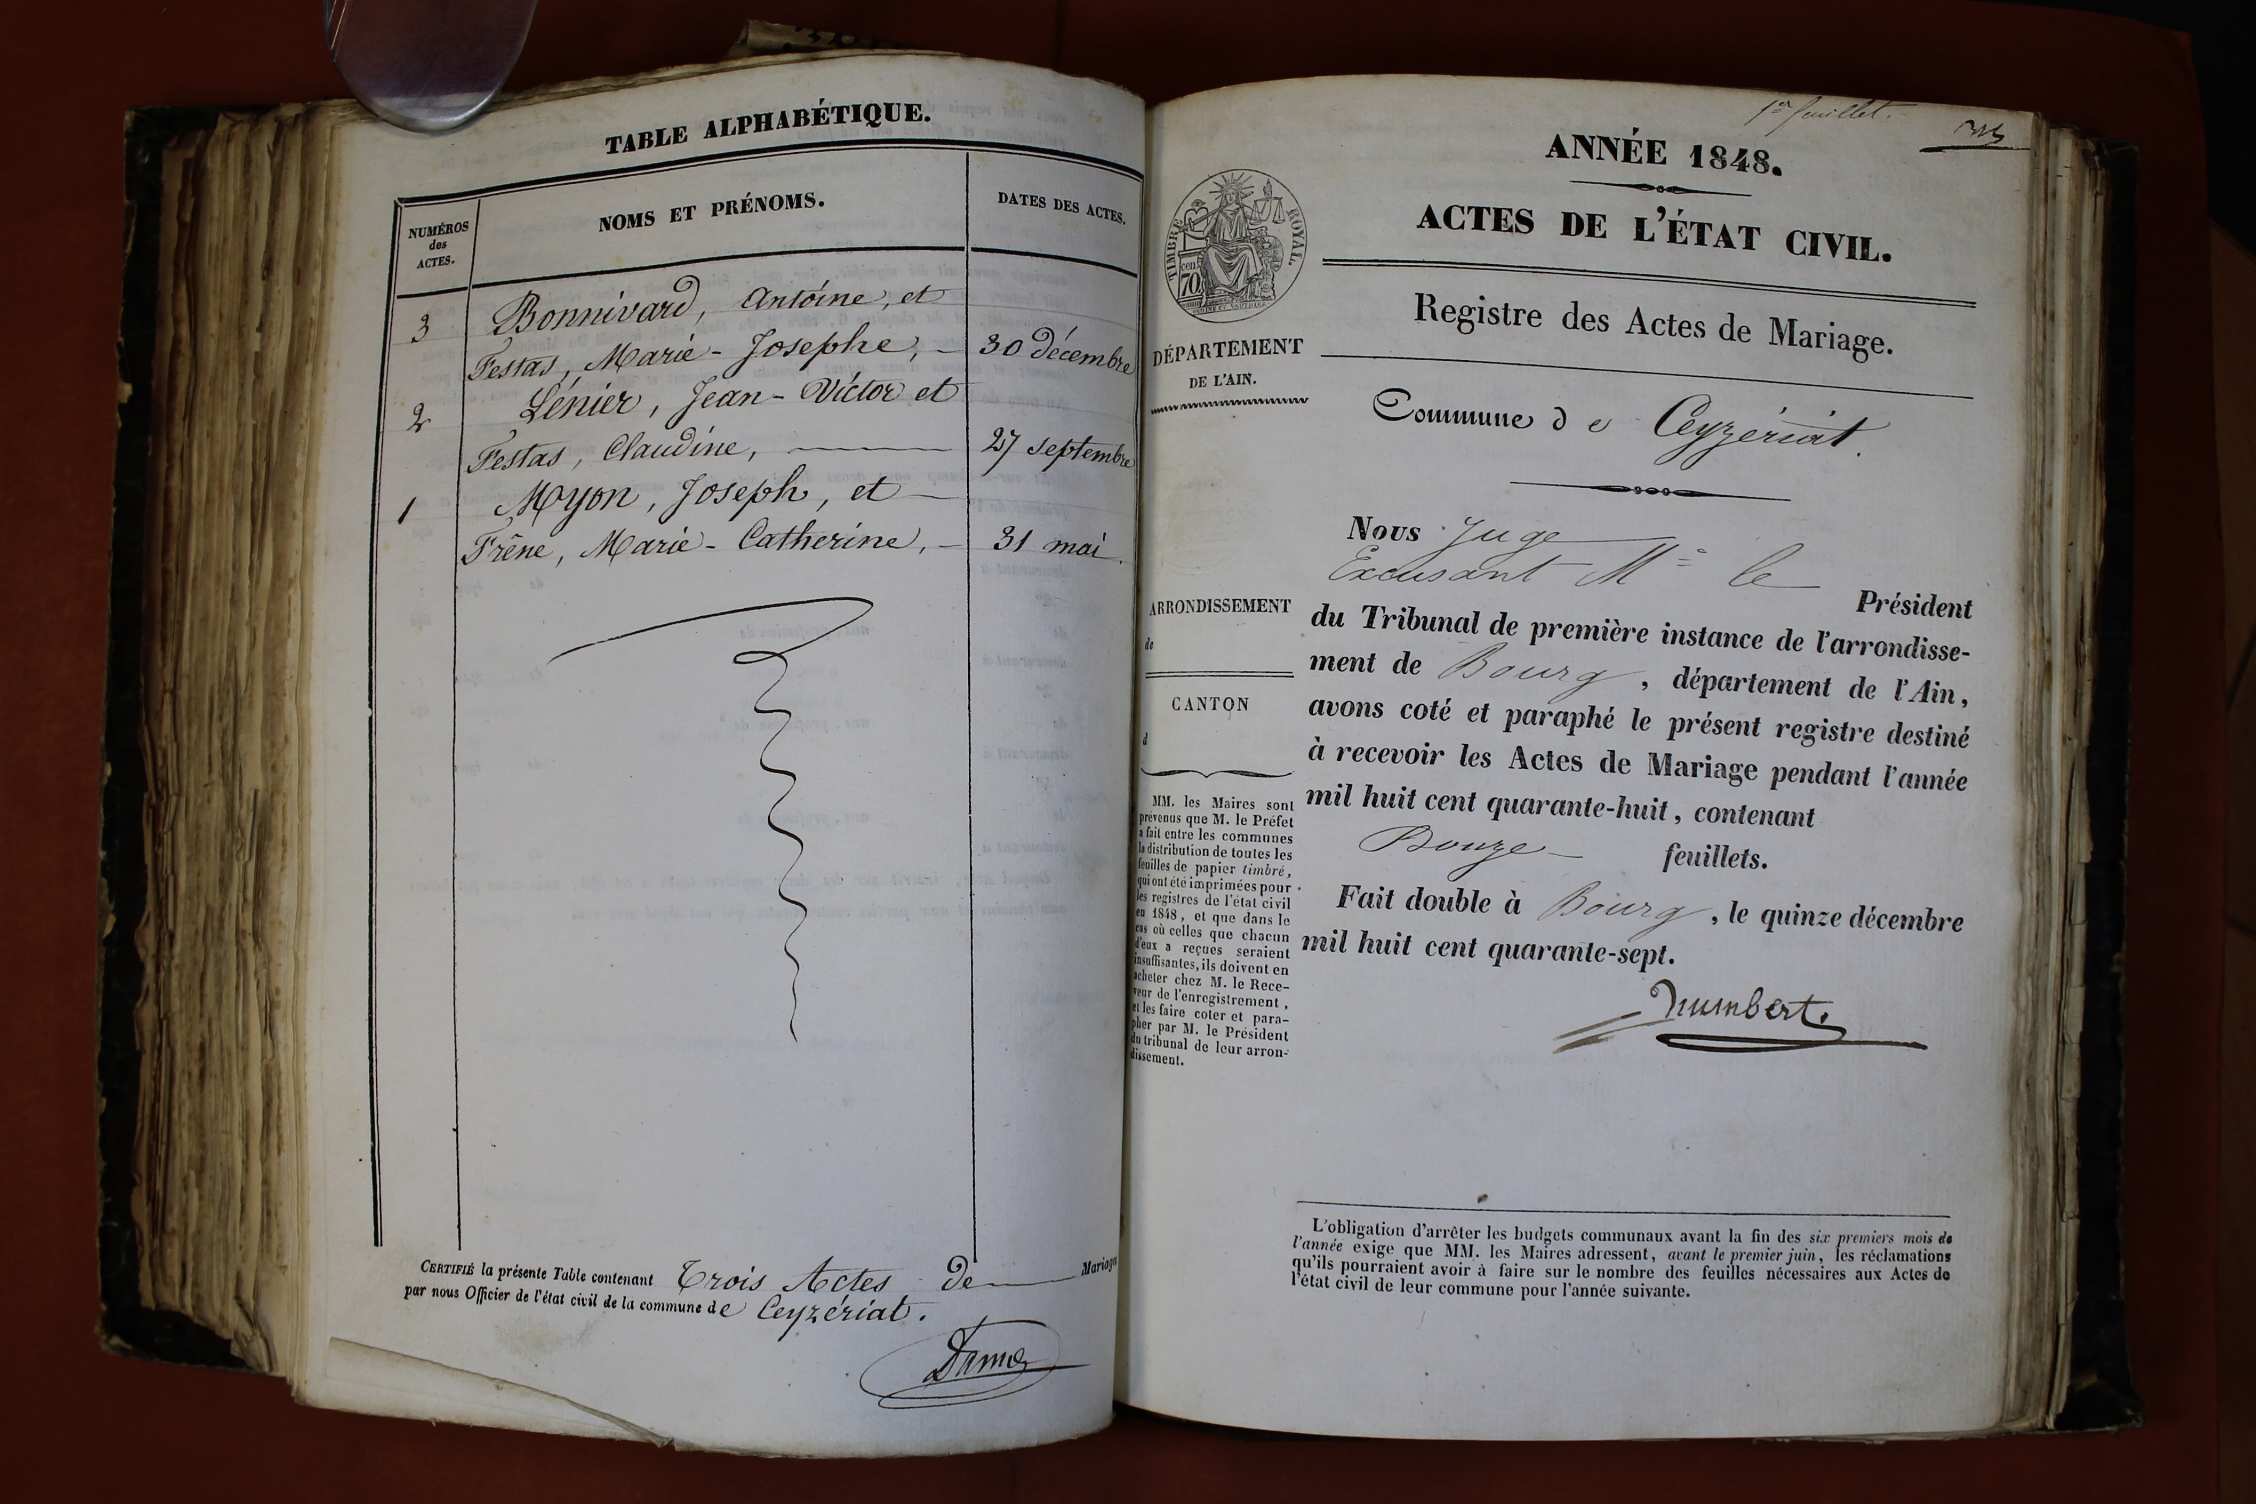 TABLE ALPHABÉTIQUE.
NUMÉROS
des
ACTES.
NOMS ET PRÉNOMS.
DATES DES ACTES.
3 Bonnivard, Antoine, et
Festas, Marie-Josephe, 30 décembre
2 Lénier, Jean-Victor et
Festas, Claudine, 27 septembre
1 Myon, Joseph, et
Frêne, Marie-Catherine, 31 mai
CERTIFIÉ la présente Table contenant Trois Actes de Mariages
par nous Officier de l'état civil de la commune de Ceyzériat.
1er feuillet.
ANNÉE 1848.
ACTES DE L'ÉTAT CIVIL.
TIMBRE ROYAL.
cen.
70
Registre des Actes de Mariage.
DÉPARTEMENT
DE L'AIN.
Commune de Ceyzériat.
Nous Juge
Excusant Mr le Président
du Tribunal de première instance de l'arrondisse-
ment de Bourg, département de l'Ain,
avons coté et paraphé le présent registre destiné
à recevoir les Actes de Mariage pendant l'année
mil huit cent quarante-huit, contenant
Douze feuillets.
Fait double à Bourg, le quinze décembre
mil huit cent quarante-sept.
ARRONDISSEMENT
de
CANTON
d
MM. les Maires sont
prévenus que M. le Préfet
a fait entre les communes
la distribution de toutes les
feuilles de papier timbré,
qui ont été imprimées pour
les registres de l'état civil
en 1848, et que dans le
cas où celles que chacun
d'eux a reçues seraient
insuffisantes, ils doivent en
acheter chez M. le Rece-
veur de l'enregistrement,
et les faire coter et para-
pher par M. le Président
du tribunal de leur arron-
dissement.
L'obligation d'arrêter les budgets communaux avant la fin des six premiers mois de
l'année exige que MM. les Maires adressent, avant le premier juin, les réclamations
qu'ils pourraient avoir à faire sur le nombre des feuilles nécessaires aux Actes de
l'état civil de leur commune pour l'année suivante.